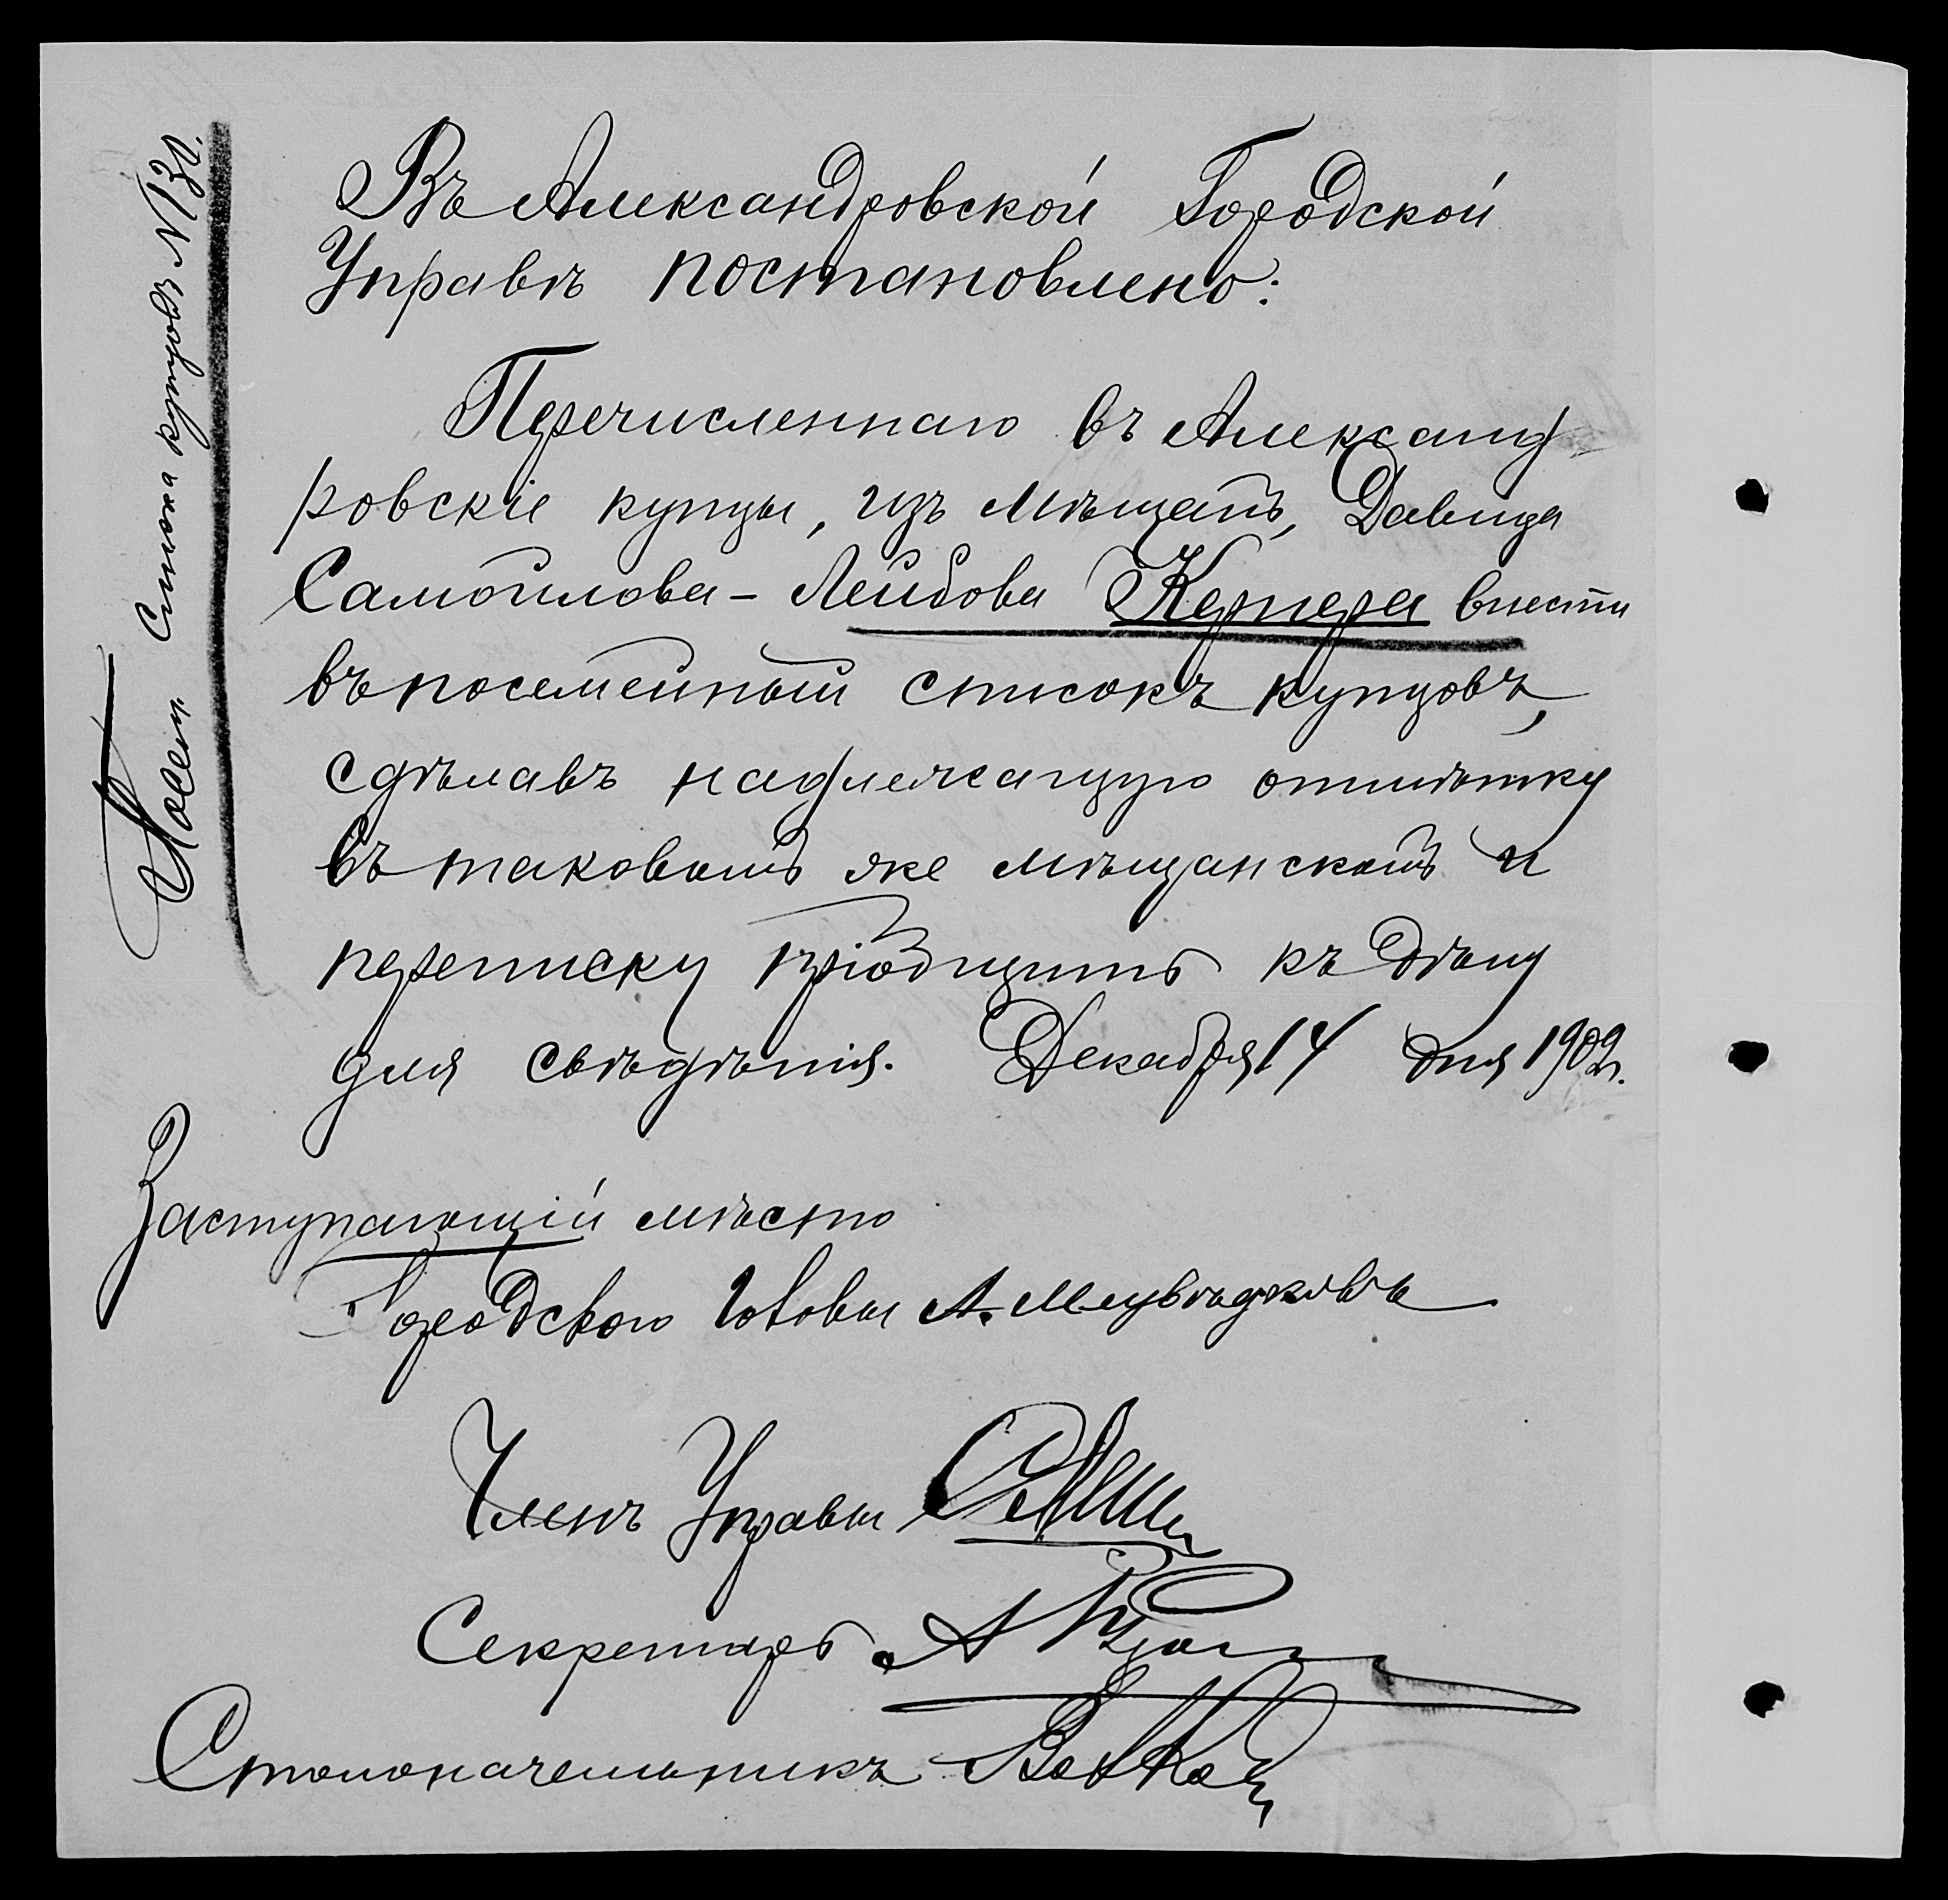 Въ Александровской Городской
Управѣ постановлено:
Перечисленнаго въ Александ-
ровскіе купцы, изъ мѣщанъ, Давида
Самойлова-Лейбова Кернера внести
въ посемейный списокъ купцовъ,
сдѣлавъ надлежащую отмѣтку
въ таковомъ же мѣщанскомъ и
переписку пріобщить къ дѣлу
для свѣдѣнія. Декабря 14 дня 1902г.
Заступающій мѣсто
Городского Головы А.
Членъ Управы
Секретарь А
Столоначальникъ
Посем. списка купцовъ №